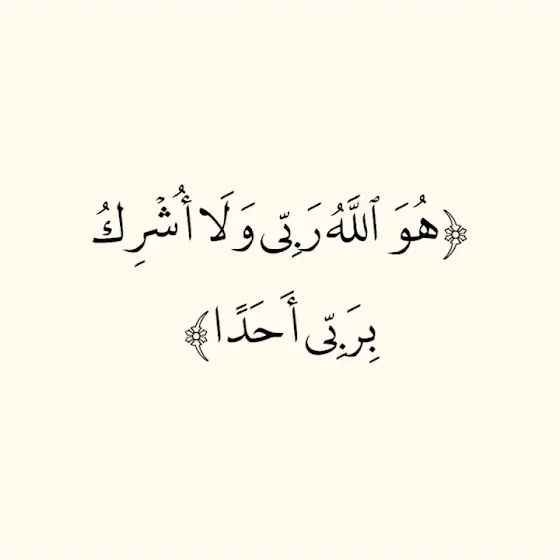 ﴿هُوَ ٱللَّهُ رَبِّى وَلَا أُشْرِكُ
بِرَبِّى أَحَدًا﴾